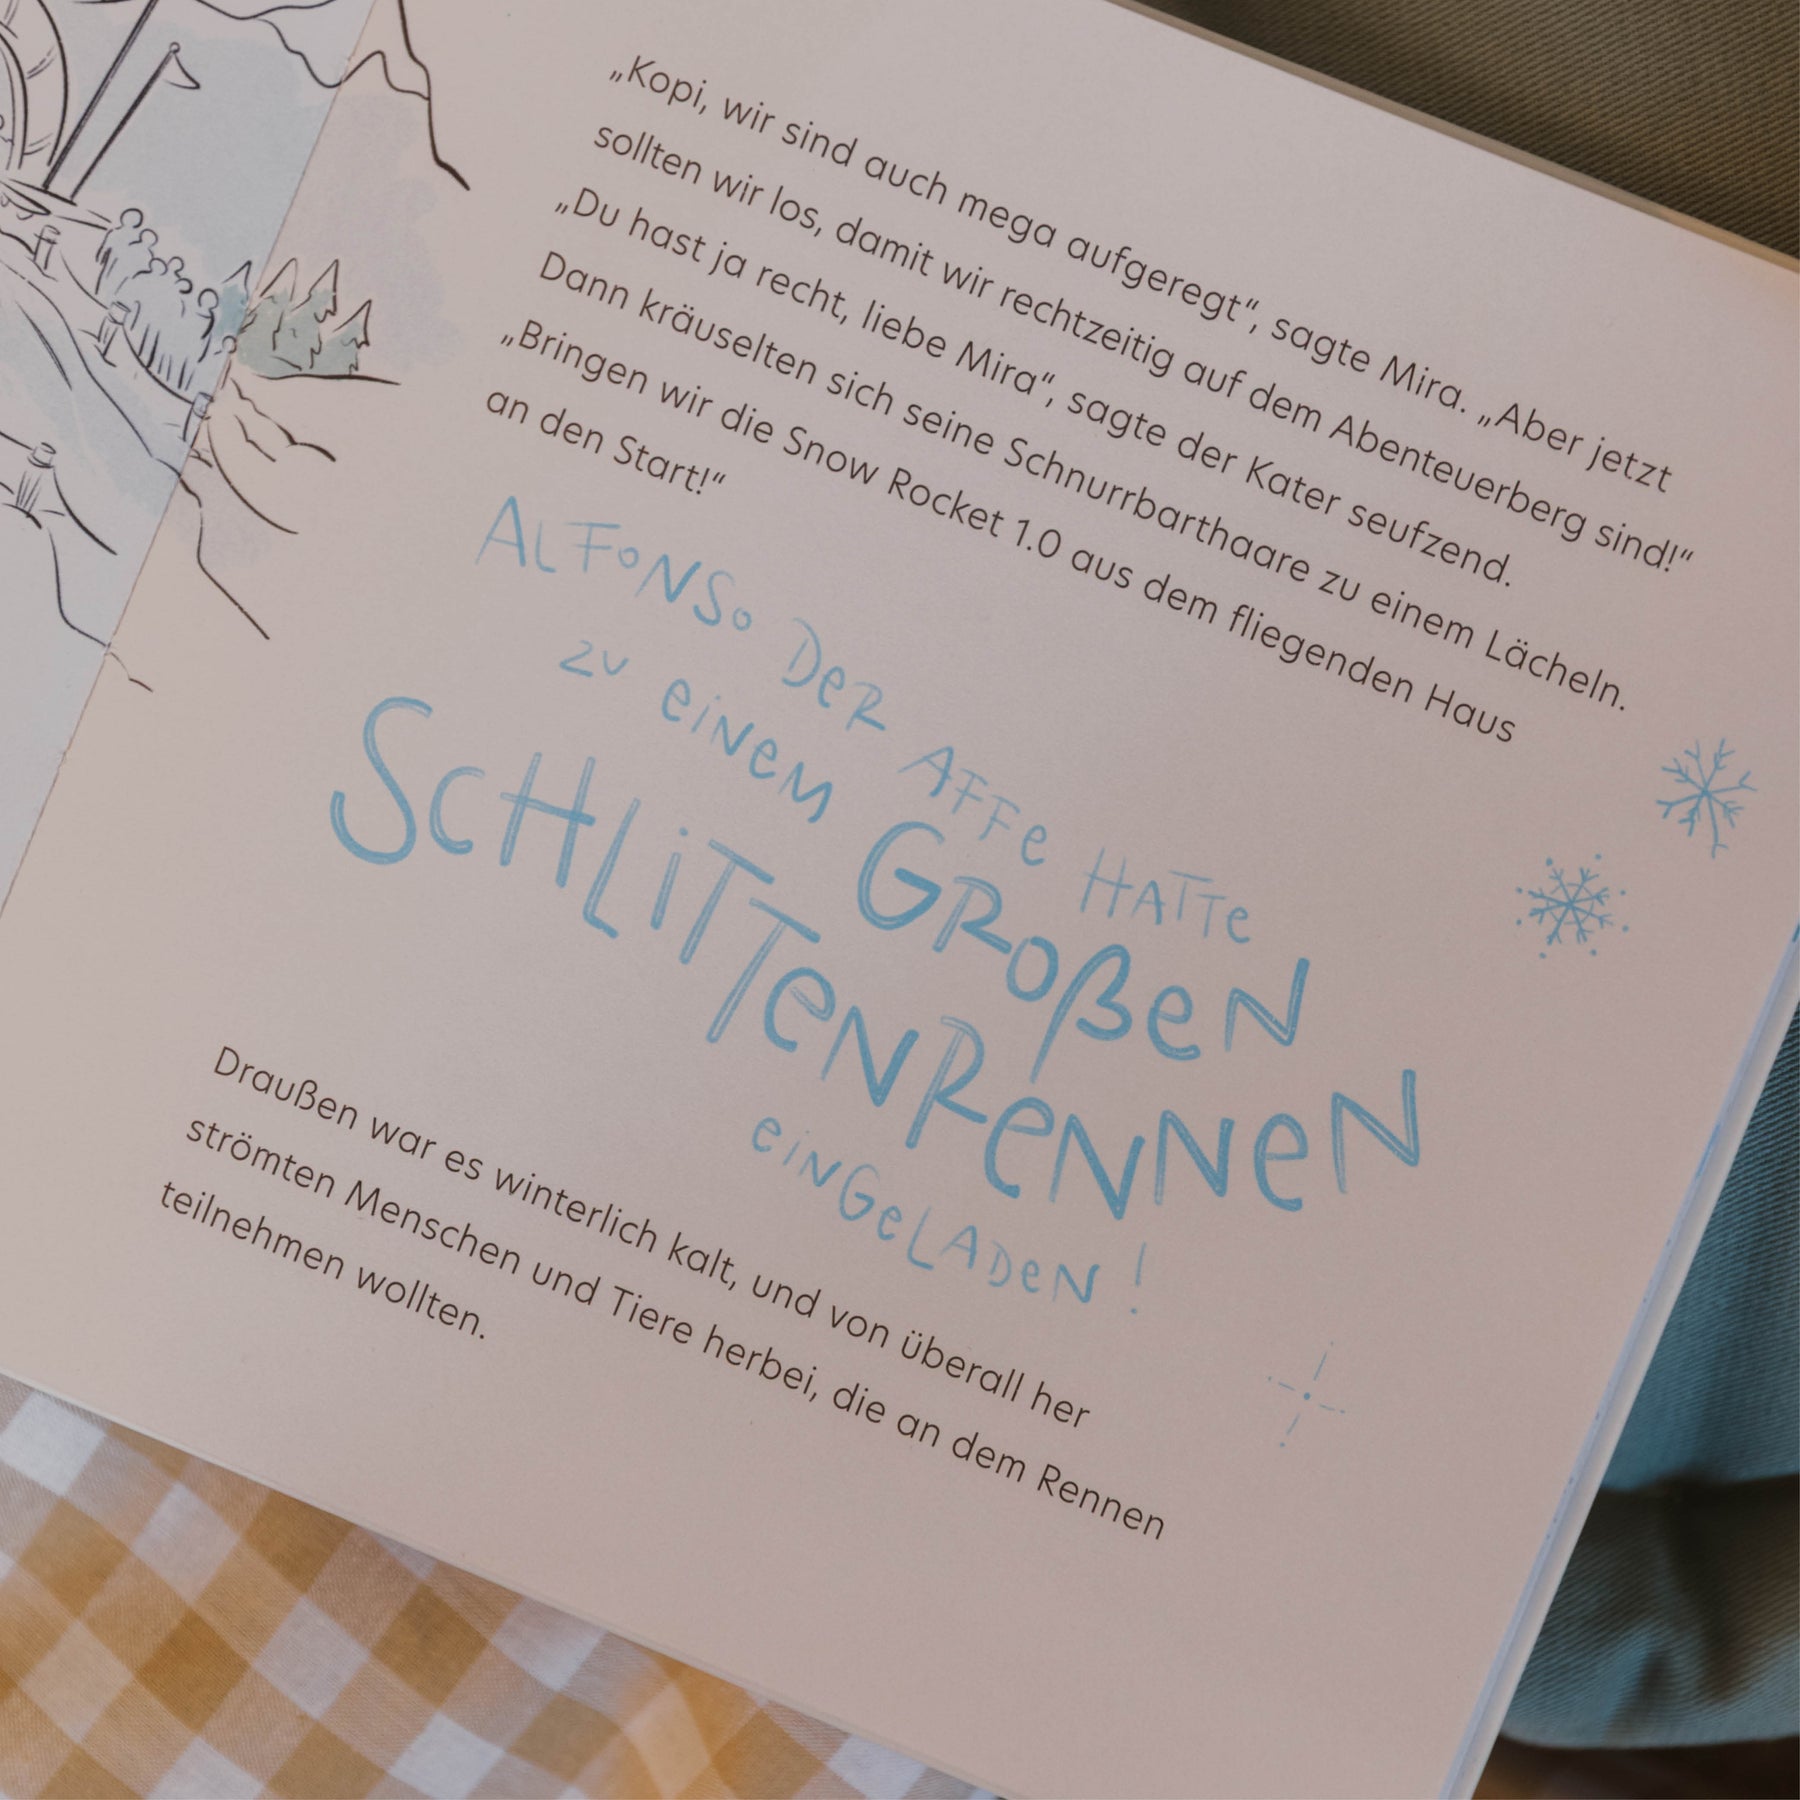 „Kopi, wir sind auch mega aufgeregt“, sagte Mira. „Aber jetzt
sollten wir los, damit wir rechtzeitig auf dem Abenteuerberg sind!“
„Du hast ja recht, liebe Mira“, sagte der Kater seufzend.
Dann kräuselten sich seine Schnurrbarthaare zu einem Lächeln.
„Bringen wir die Snow Rocket 1.0 aus dem fliegenden Haus
an den Start!“
ALFONSO DER AFFE HATTE
ZU EINEM GROßEN
SCHLITTENRENNEN
EINGELADEN!
Draußen war es winterlich kalt, und von überall her
strömten Menschen und Tiere herbei, die an dem Rennen
teilnehmen wollten.